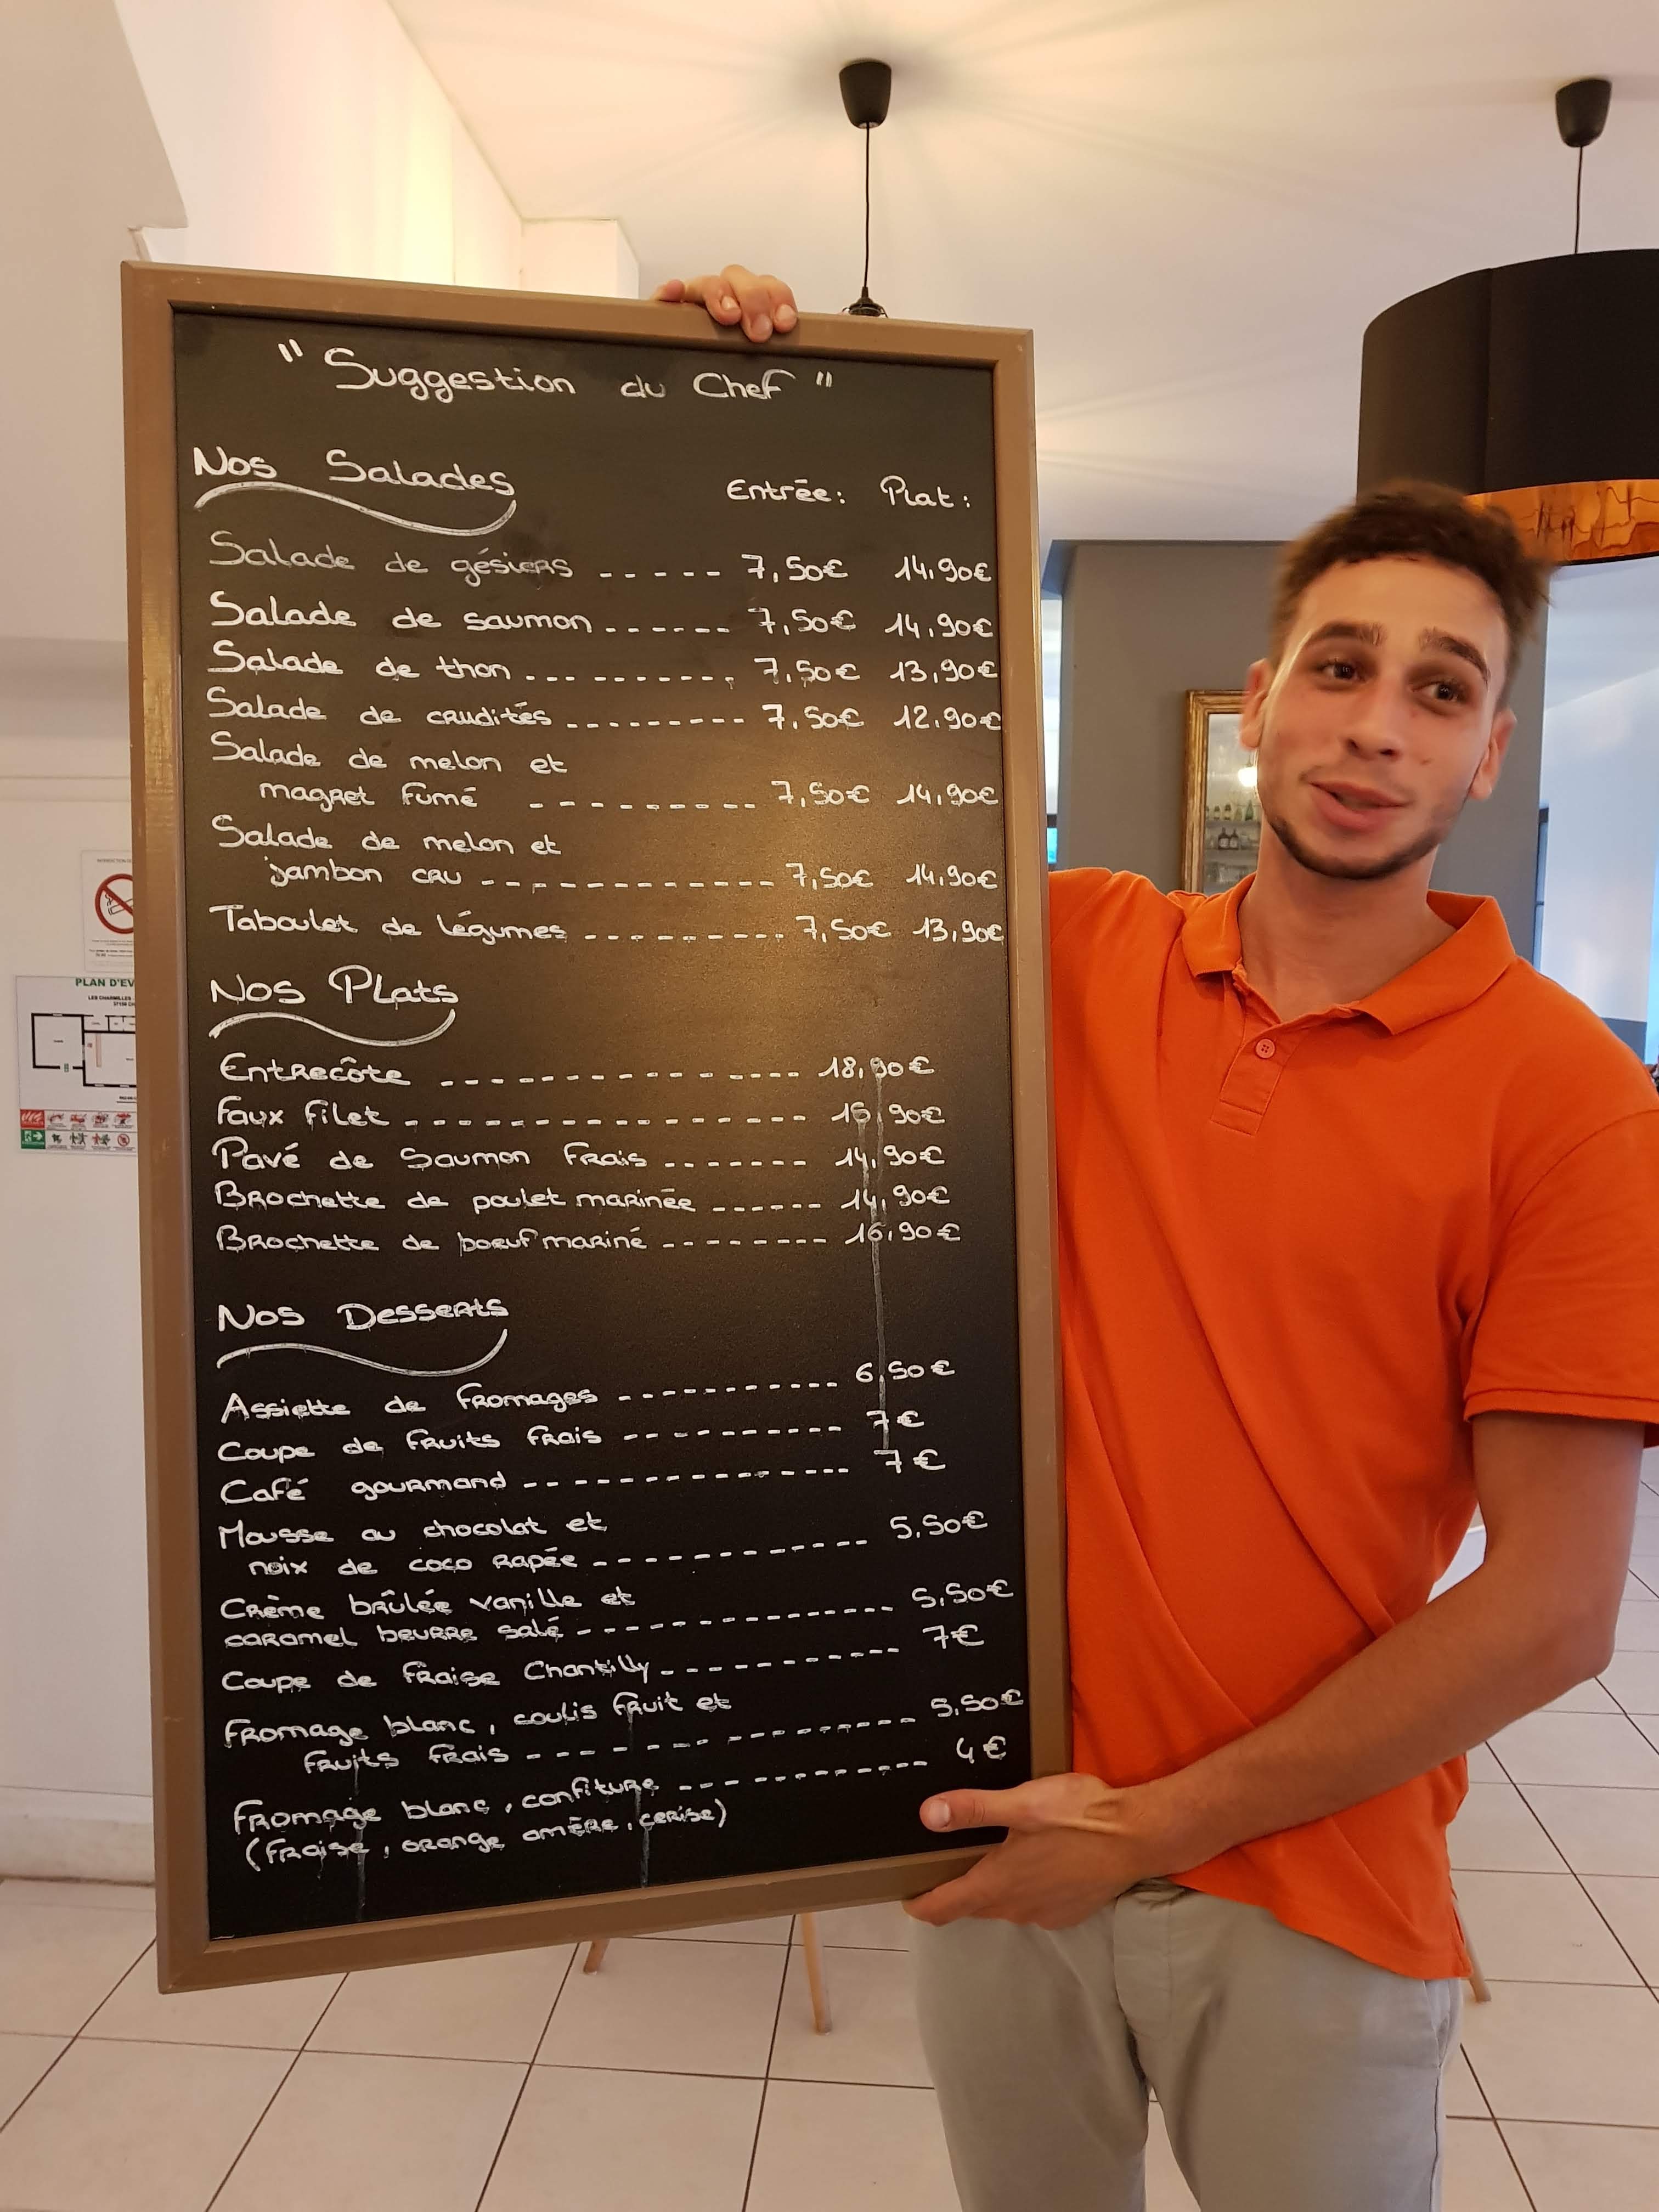 " Suggestion du Chef "
Nos Salades Entrée: Plat:
Salade de gésiers ----- 7,50€ 14,90€
Salade de saumon ------ 7,50€ 14,90€
Salade de thon ---------- 7,50€ 13,90€
Salade de crudités --------- 7,50€ 12,90€
Salade de melon et
magret fumé ---------- 7,50€ 14,90€
Salade de melon et
jambon cru ------------ 7,50€ 14,90€
Taboulet de légumes ---------- 7,50€ 13,90€
Nos Plats
Entrecôte ---------------- 18,90€
Faux filet ----------------- 16,90€
Pavé de Saumon frais ------- 14,90€
Brochette de poulet marinée ------ 14,90€
Brochette de boeuf mariné -------- 16,90€
Nos Desserts
Assiette de fromages ----------- 6,50€
Coupe de fruits frais ---------- 7€
Café gourmand --------------- 7€
Mousse au chocolat et
noix de coco rapée ------------ 5,50€
Crème brûlée vanille et
caramel beurre salé -------------- 5,50€
Coupe de fraise Chantilly ----------- 7€
Fromage blanc, coulis fruit et
fruits frais ----------------- 5,50€
Fromage blanc, confiture ------------ 4€
(fraise, orange amère, cerise)
PLAN D'EV
LES CHARMILLES